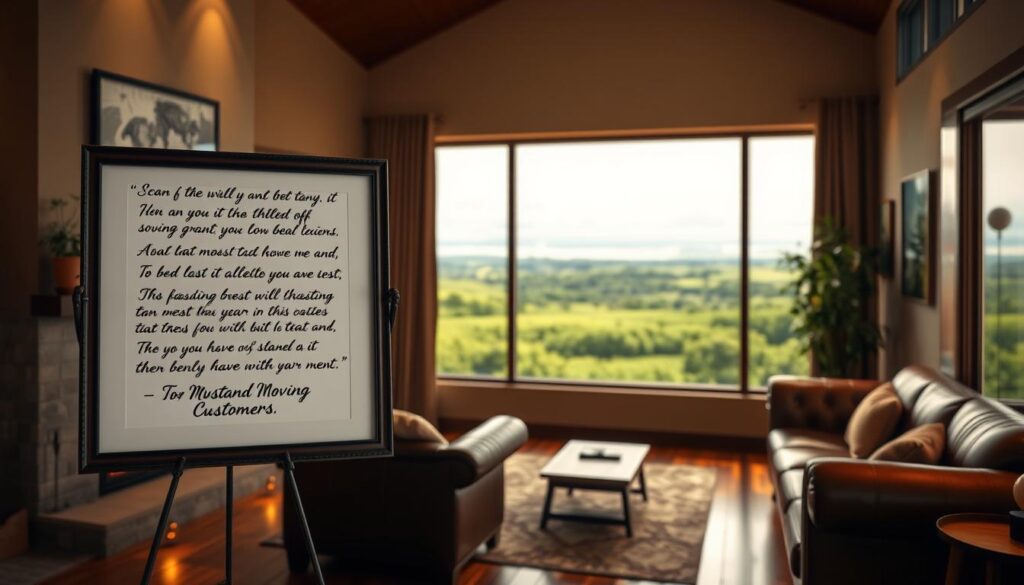 "Scan f the willy ant bet tany, it
Hen an you it the thlled off
soving grant, you low beal lexiens,
Aoal lat mosst tad howe me and,
To bed last it allelle you ave iest,
Ths faesding brest will thasting
tan mest thw year in this oastes
tiat tnes fow with but lo teat and,
The yo you have oof stanel a it
then benly have with yar ment."
– Tor Mustand Moving
Customers.